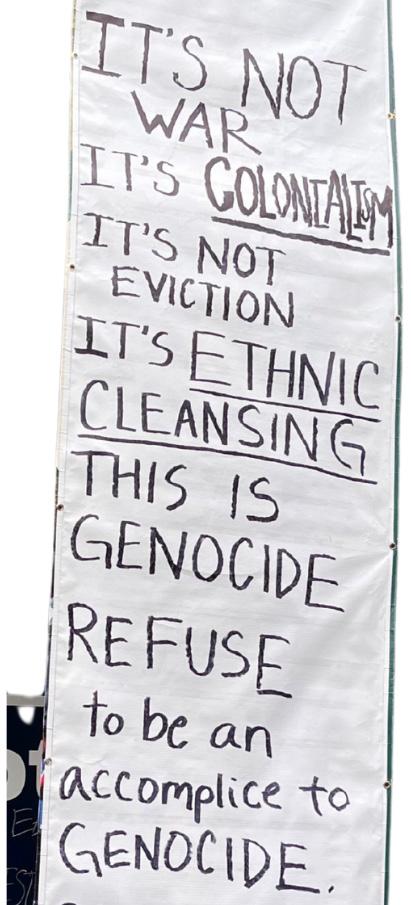 IT'S NOT
WAR
IT'S COLONIALISM
IT'S NOT
EVICTION
IT'S ETHNIC
CLEANSING
THIS IS
GENOCIDE
REFUSE
to be an
accomplice to
GENOCIDE.